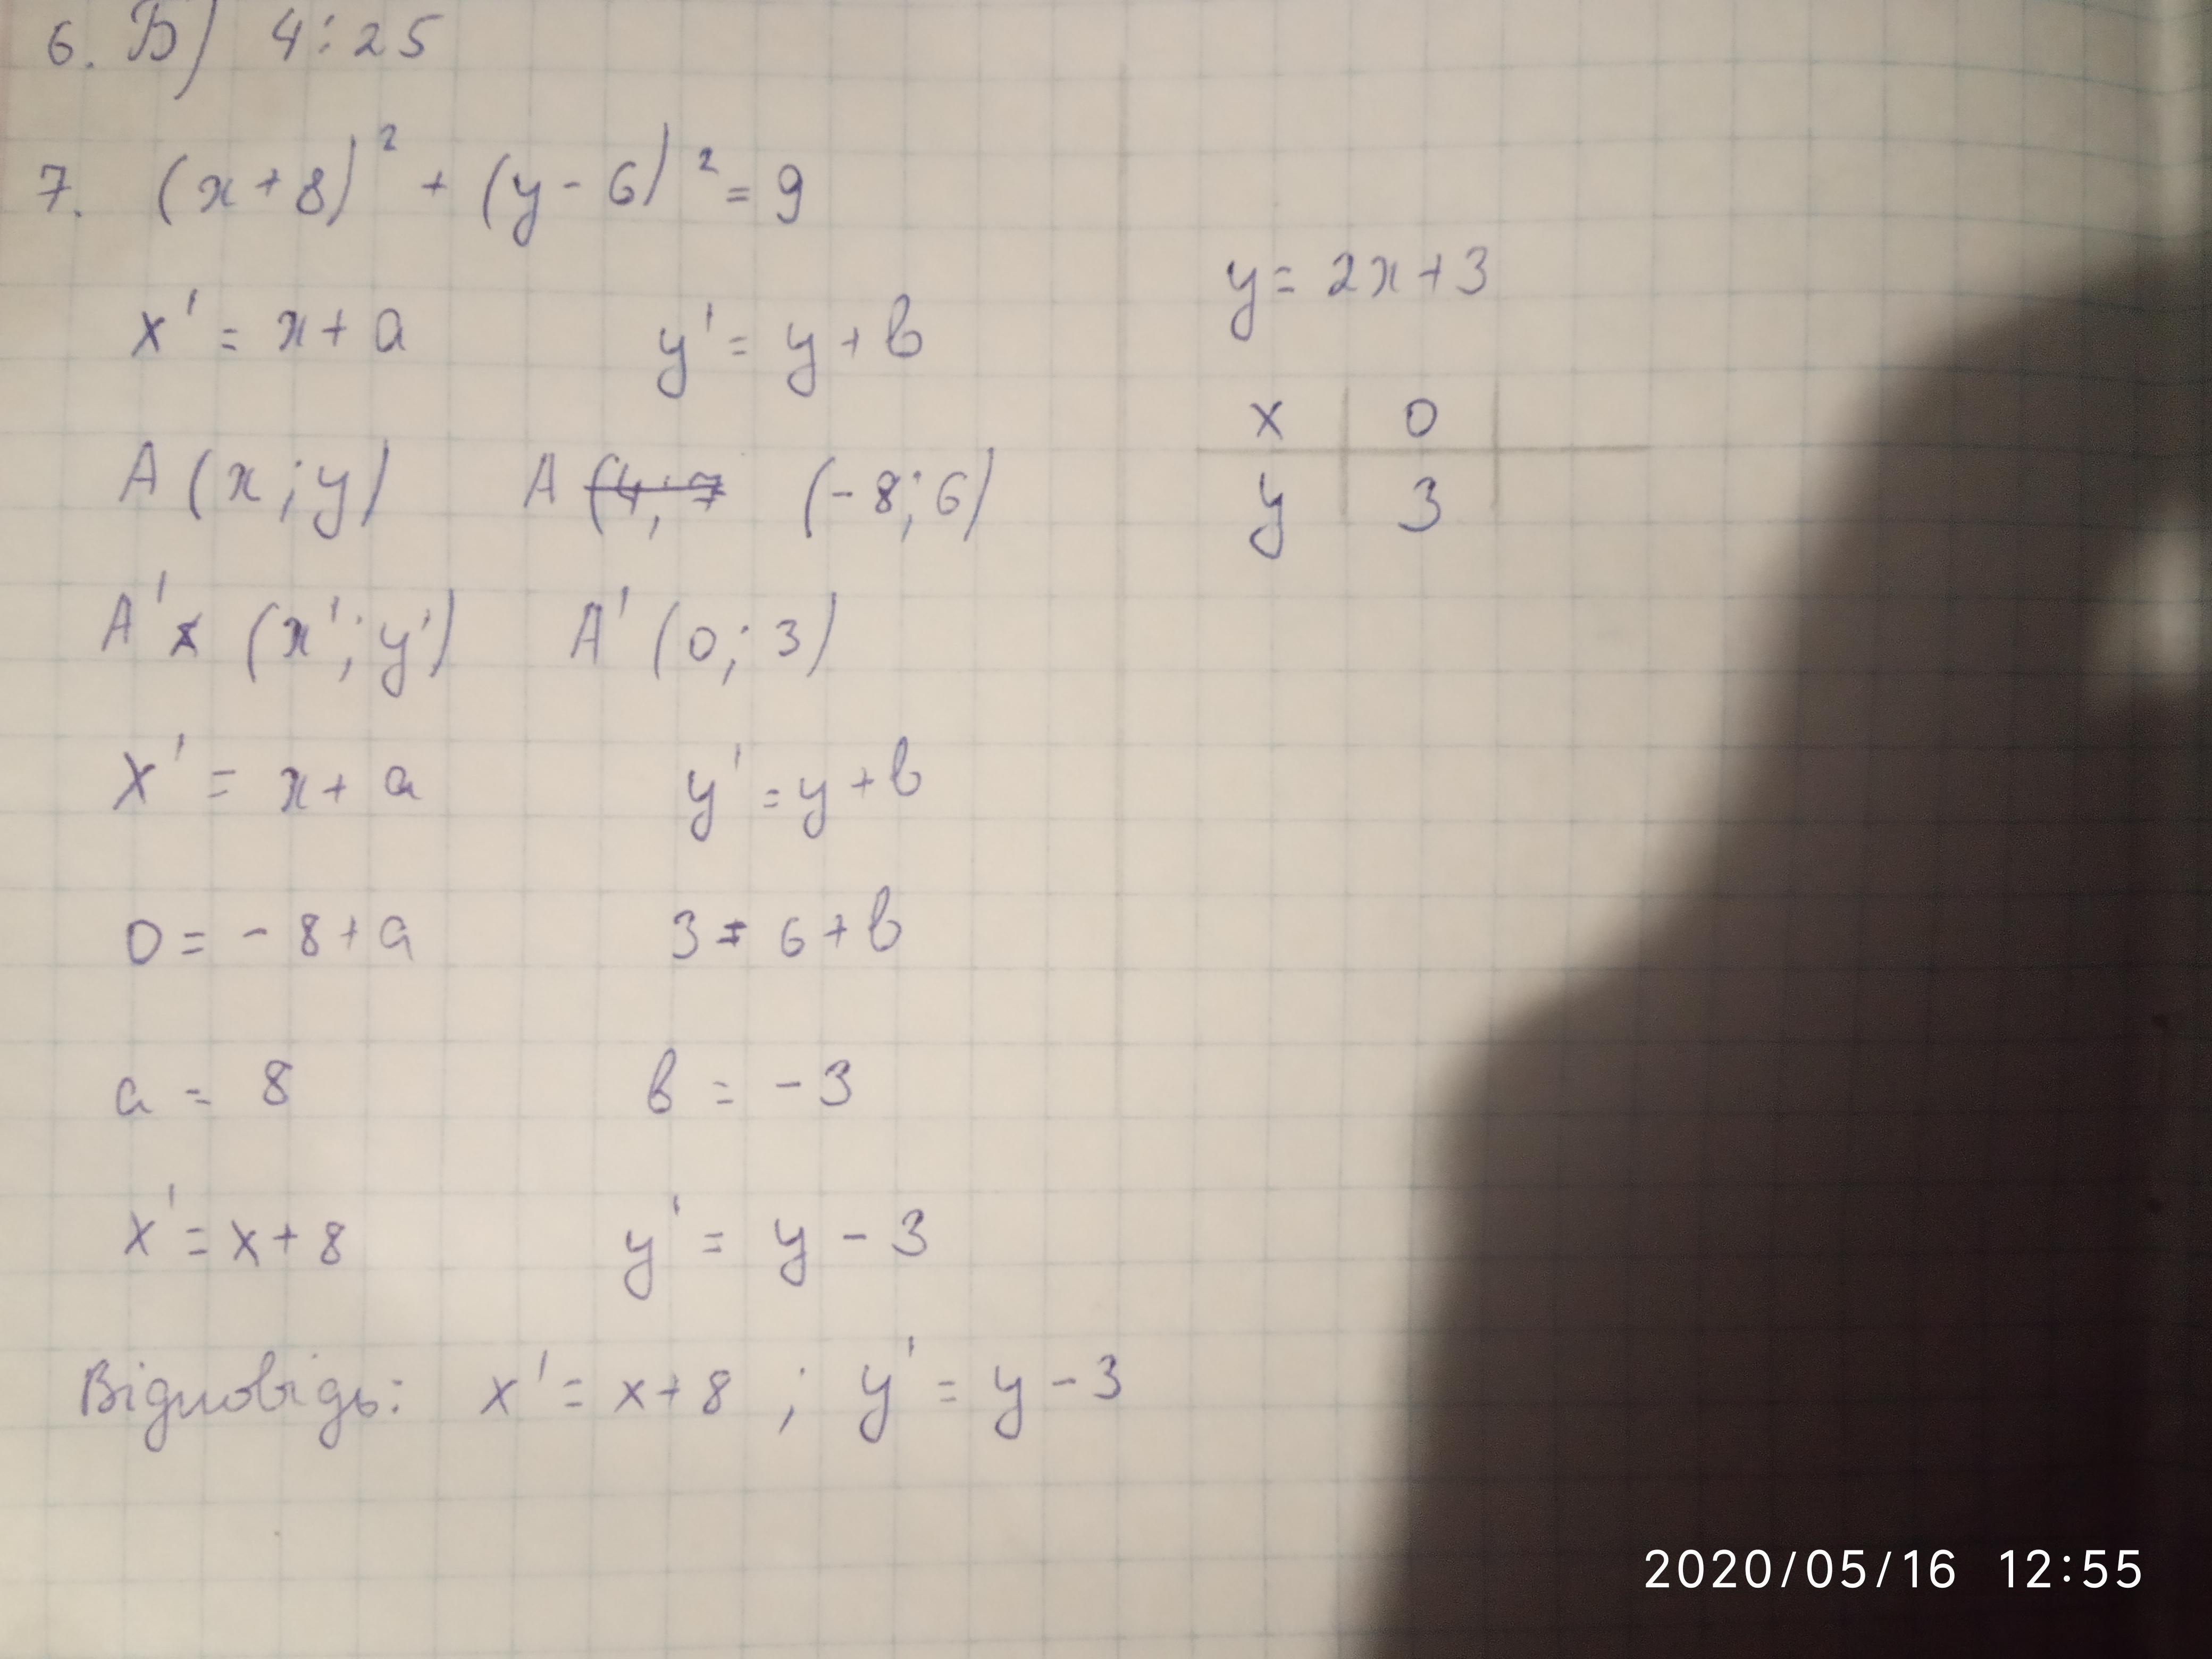 6. Б) 4:25
7. (x+8)² + (y-6)² = 9
x' = x + a y' = y + в
A (x; y) A (4; 7 (-8; 6)
A' (x'; y') A' (0; 3)
x' = x + a y' = y + в
0 = -8 + a 3 = 6 + в
a = 8 в = -3
x' = x + 8 y' = y - 3
Відповідь: x' = x + 8 ; y' = y - 3
y = 2x + 3
x 0
y 3
2020/05/16 12:55